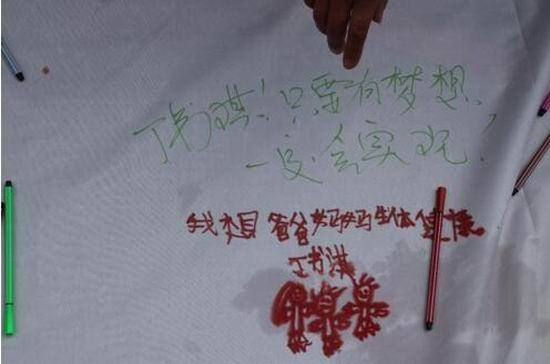 丁书琪！只要有梦想，
一定会实现！
我想爸爸妈妈生体健康。
丁书淇